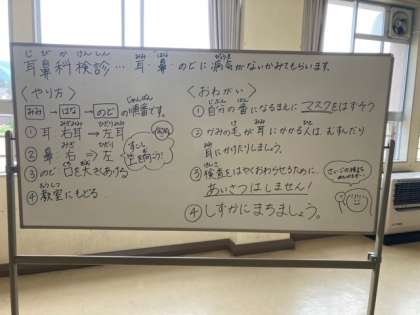 じびかけんしん
耳鼻科検診…耳・鼻・のどに病気がないかみてもらいます。
〈やり方〉
みみ→はな→のどの順番です。
① 耳 右耳→左耳
② 鼻 右→左
すこし上を向う!
③ のど 口を大きくあける
④ 教室にもどる
〈おねがい〉
① 自分の番になるまえにマスクをはずそう
② かみの毛が耳にかかる人は、むすんだり
耳にかけたりしましょう。
③ 検査をはやくおわらせるために、
あいさつはしません!
④ しずかにまちましょう。